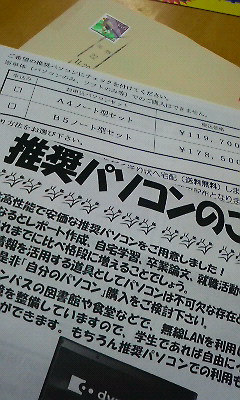 ご希望の推奨パソコンにチェックを付けてください。
お申込パソコンセット
A4ノート型セット
￥119,700
B5ノート型セット
￥178,500
り方法をお選び下さい。
宅配（送料無料）
推奨パソコンのご
高性能で安価な推奨パソコンをご用意しました！
なるとレポート作成、自宅学習、卒業論文、就職活動
れまでに比べ格段に増えることでしょう。
情報を活用する道具としてパソコンは不可欠な存在
是非「自分のパソコン」購入をご検討下さい。
ンパスの図書館や食堂などで、無線LANを利用し
を整備していますので、学生であれば自由に
ができます。もちろん推奨パソコンでの利用も
dyn